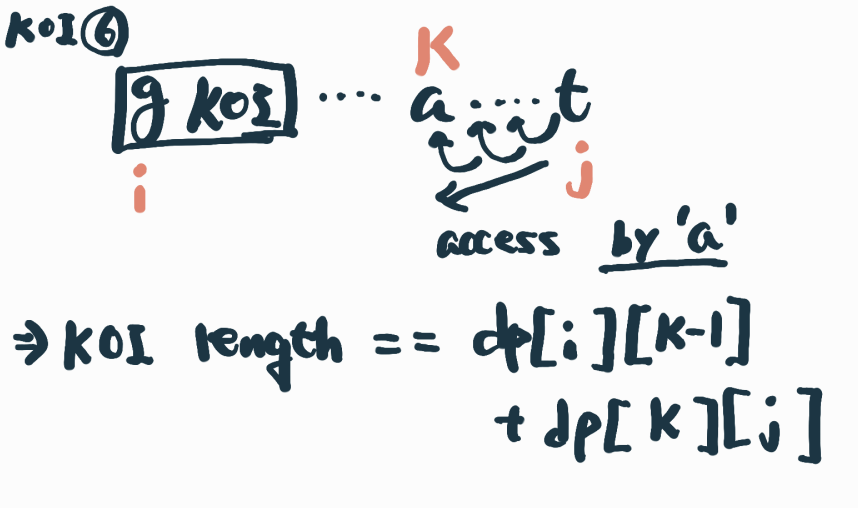 KOI⑥
K
g KOI ···· a ····· t
i j
access by 'a'
⇒ KOI length == dp[i][K-1]
+ dp[K][j]